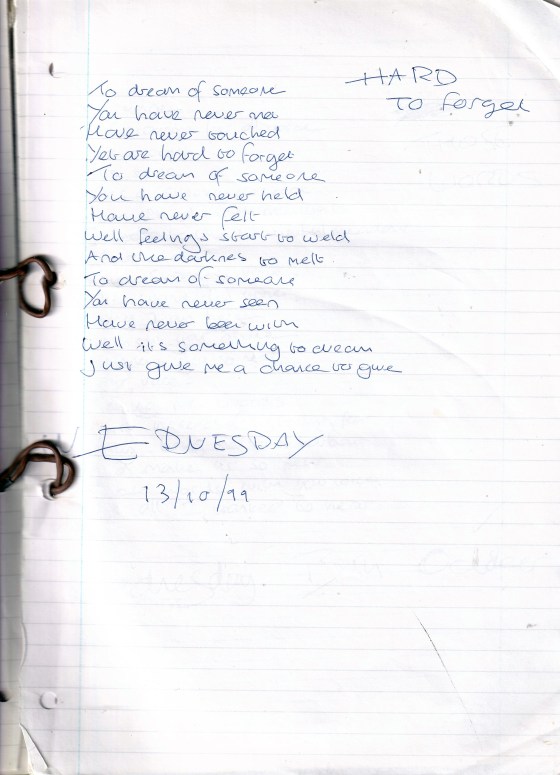 HARD
To forget
To dream of someone
You have never met
Have never touched
Yet are hard to forget
To dream of someone
You have never held
Have never felt
Well feelings start to weld
And the darknes to melt.
To dream of someone
You have never seen
Have never been with
Well its something to dream
Just give me a chance to give
WEDNESDAY
13/10/99